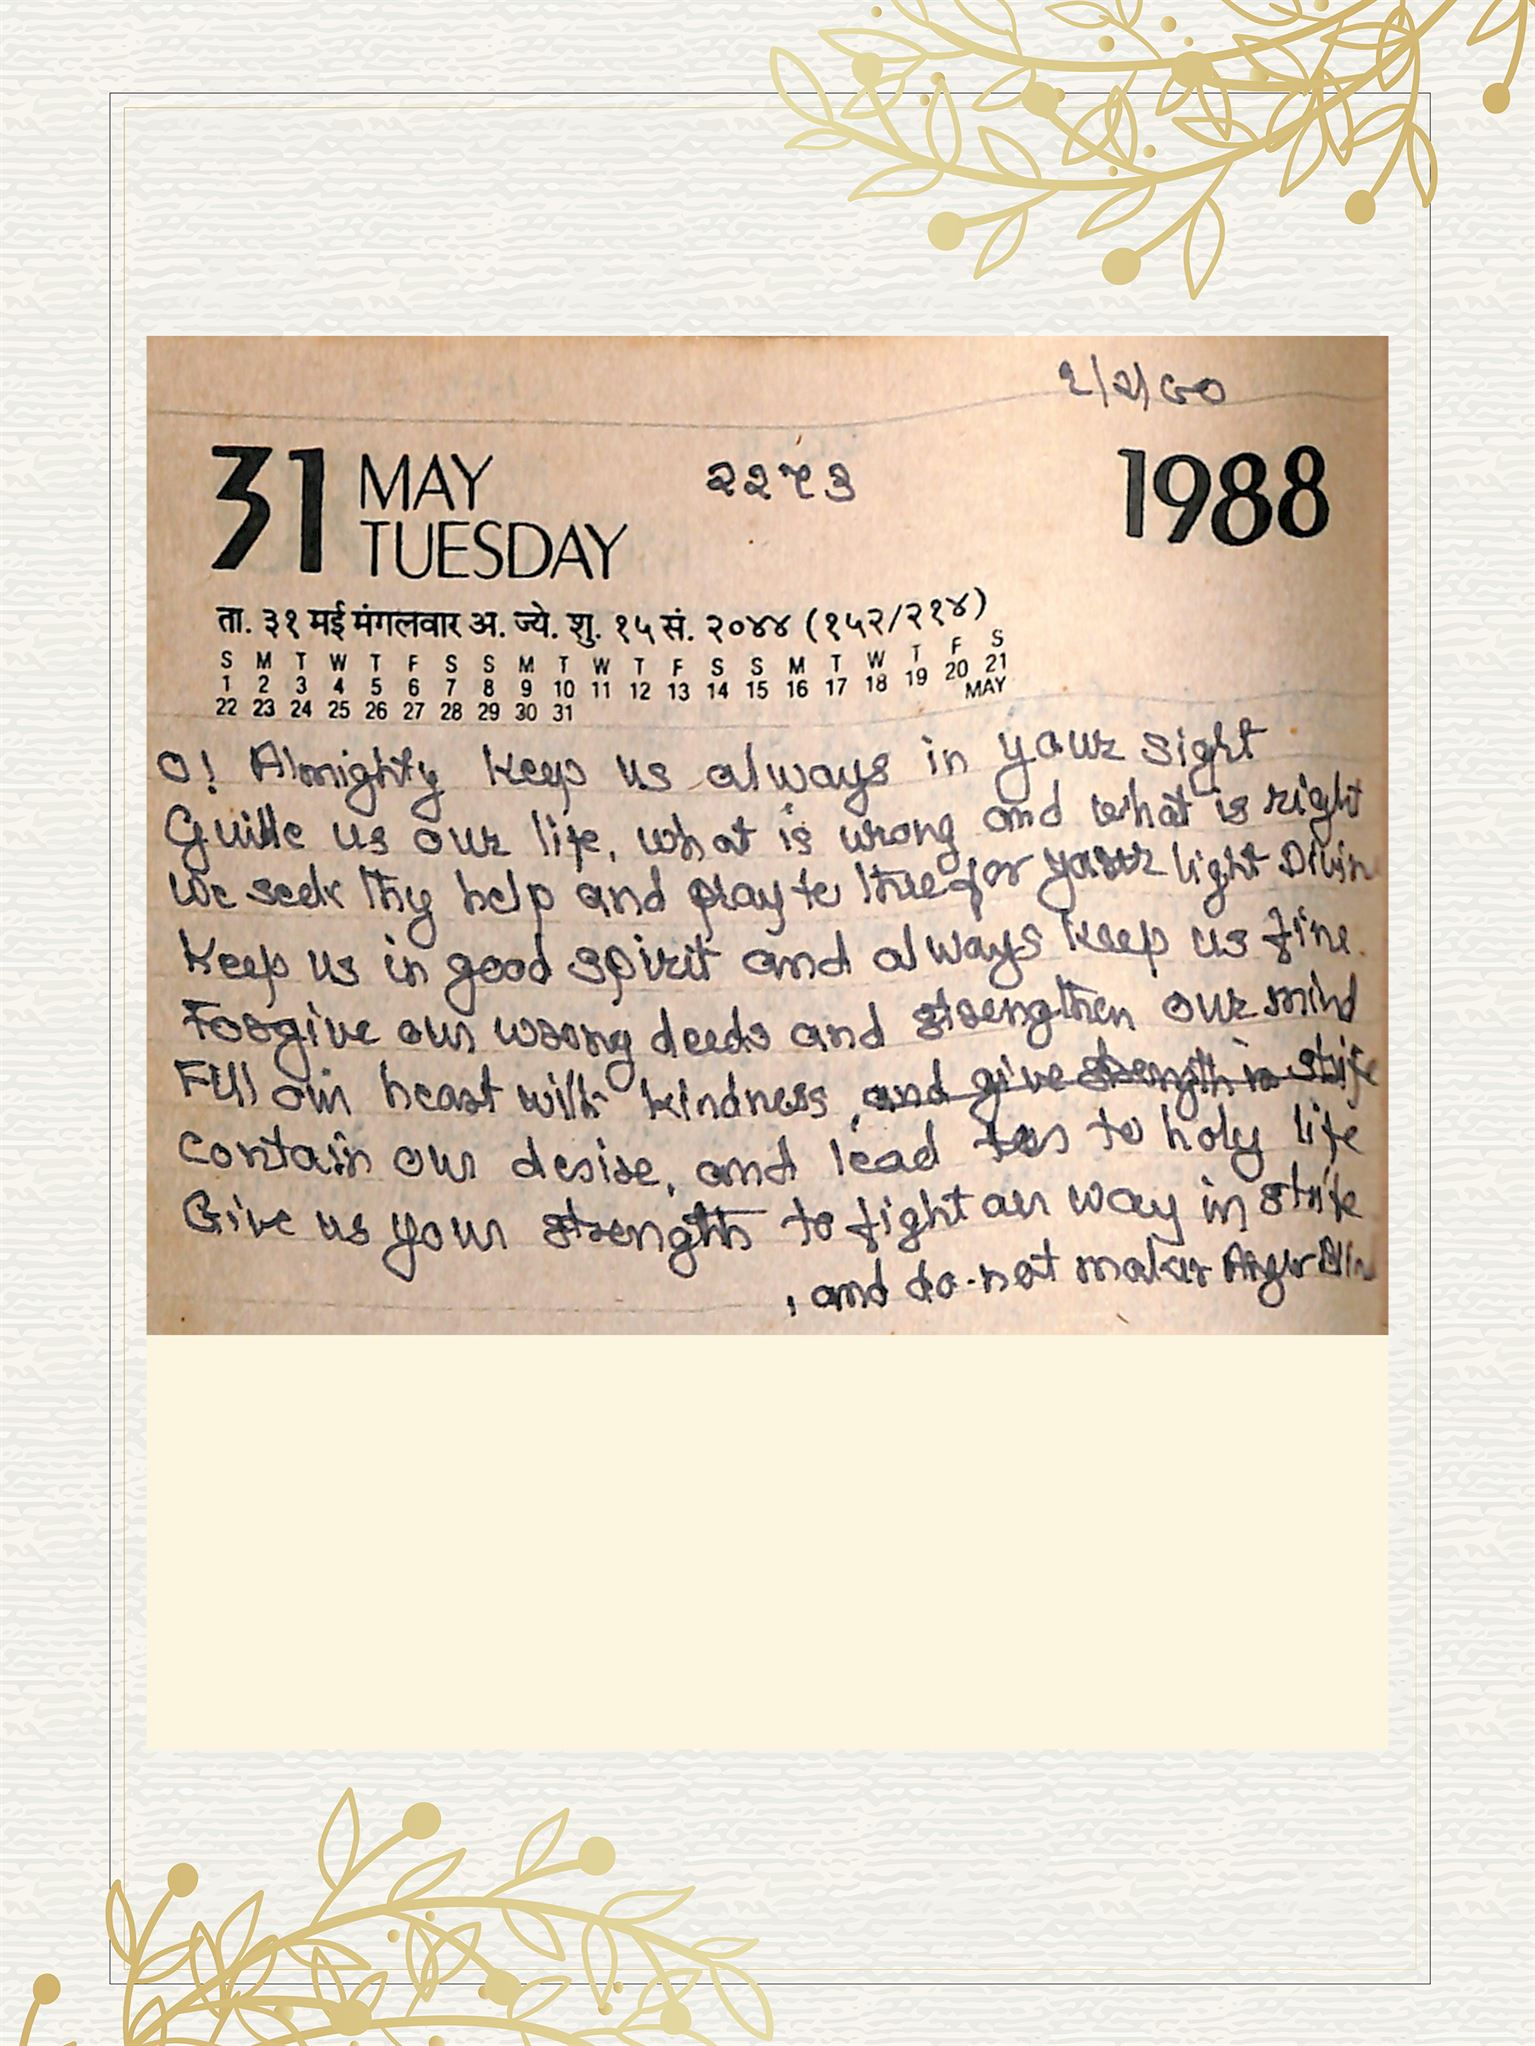 ૨/૨/૯૦
31 MAY TUESDAY
૨૨૧૩
1988
ता. ३१ मई मंगलवार अ. ज्ये. शु. १५ सं. २०४४ (१५२/२१४)
S M T W T F S S M T W T F S S M T W T F S
1 2 3 4 5 6 7 8 9 10 11 12 13 14 15 16 17 18 19 20 21
22 23 24 25 26 27 28 29 30 31 MAY
O! Almighty keep us always in your sight
Guide us our life, what is wrong and what is right
We seek thy help and pray to thee for your light Divin
Keep us in good spirit and always keep us fine.
Forgive our wrong deeds and strengthen our mind
Fill our heart with kindness, and give strength in strife
Contain our desire, and lead us to holy life
Give us your strength to fight our way in strife
, and do not make us Anger Blin